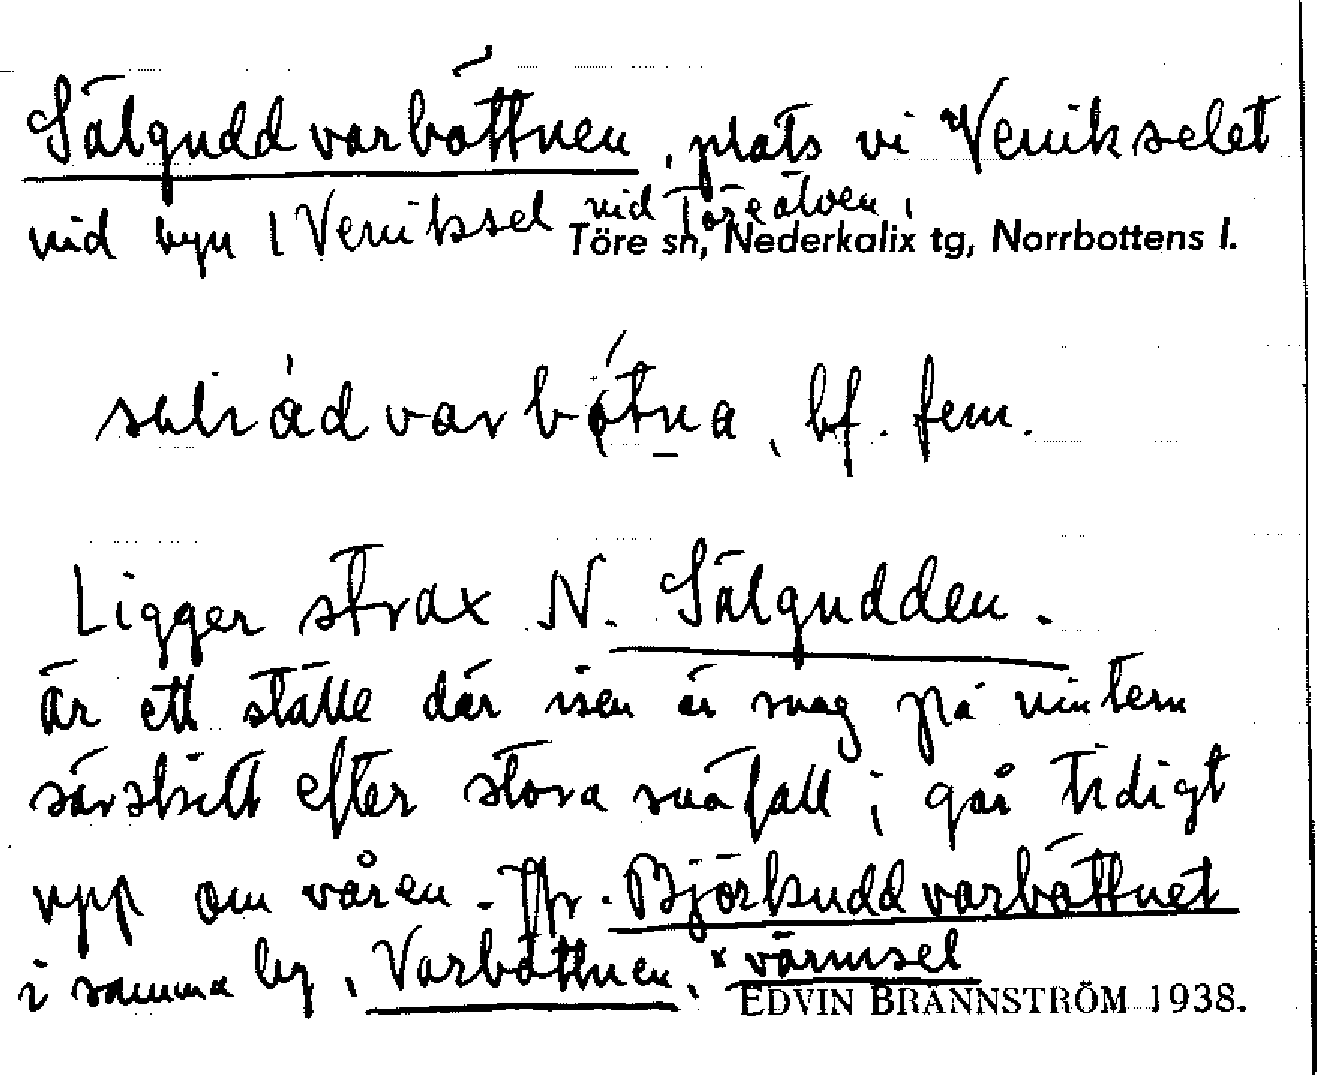 Sälguddvarböttnen, plats vi Venikselet
vid Töreälven,
vid byn Veniksel Töre sn, Nederkalix tg, Norrbottens l.
bf. fem.
Ligger strax N. Sälgudden.
är ett ställe där isen är svag på vintern
särskilt efter stora snöfall; går tidigt
upp om våren. Jfr. Björkuddvarböttnet
i samma by, Varböttnen, *värmsel
EDVIN BRÄNNSTRÖM 1938.